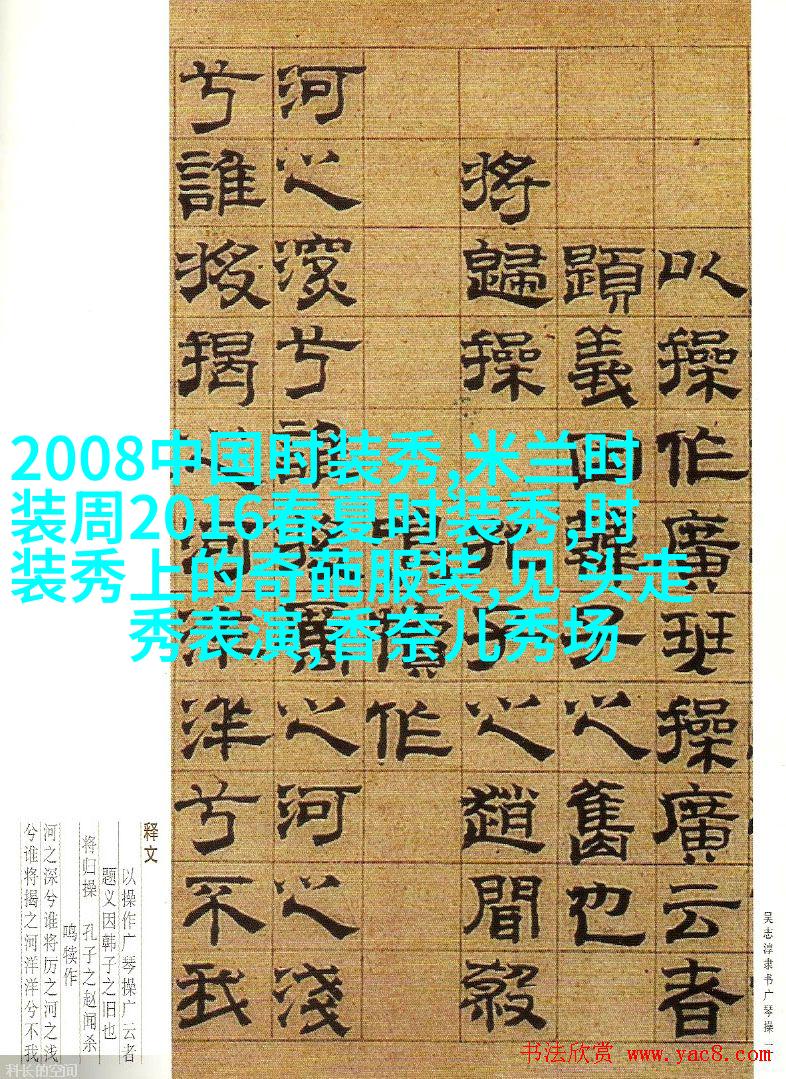 2008中国时装秀,米兰时
装周2016春夏时装秀,时
装秀上的奇葩服装,见 头走
秀表演,香奈儿秀场
以操作廣琴操廣云者
題義因韓子之舊也
將歸操 孔子之趙聞殺
鳴犢作
河之深兮誰將厲之河之淺
兮誰將揭之河洋洋兮不我
释文
以操作广琴操广云者
题义因韩子之旧也
将归操 孔子之赵闻杀
鸣犊作
河之深兮谁将厉之河之浅
兮谁将揭之河洋洋兮不我
吴志淳隶书广琴操
书法欣赏 www.yac8.com
科长的空间